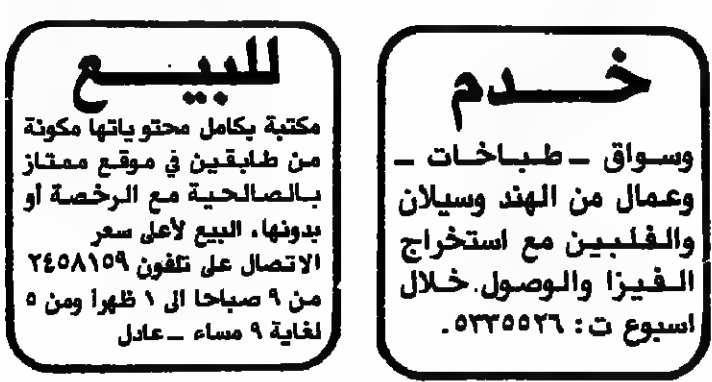 خدم
وسواق ــ طباخات ــ
وعمال من الهند وسيلان
والفلبين مع استخراج
الفيزا والوصول خلال
اسبوع ت : ٥٣٣٥٥٢٦ .
للبيع
مكتبة بكامل محتوياتها مكونة
من طابقين في موقع ممتاز
بالصالحية مع الرخصة أو
بدونها، البيع لأعلى سعر
الاتصال على تلفون ٢٤٥٨١٥٩
من ٩ صباحا الى ١ ظهرا ومن ٥
لغاية ٩ مساء ــ عادل